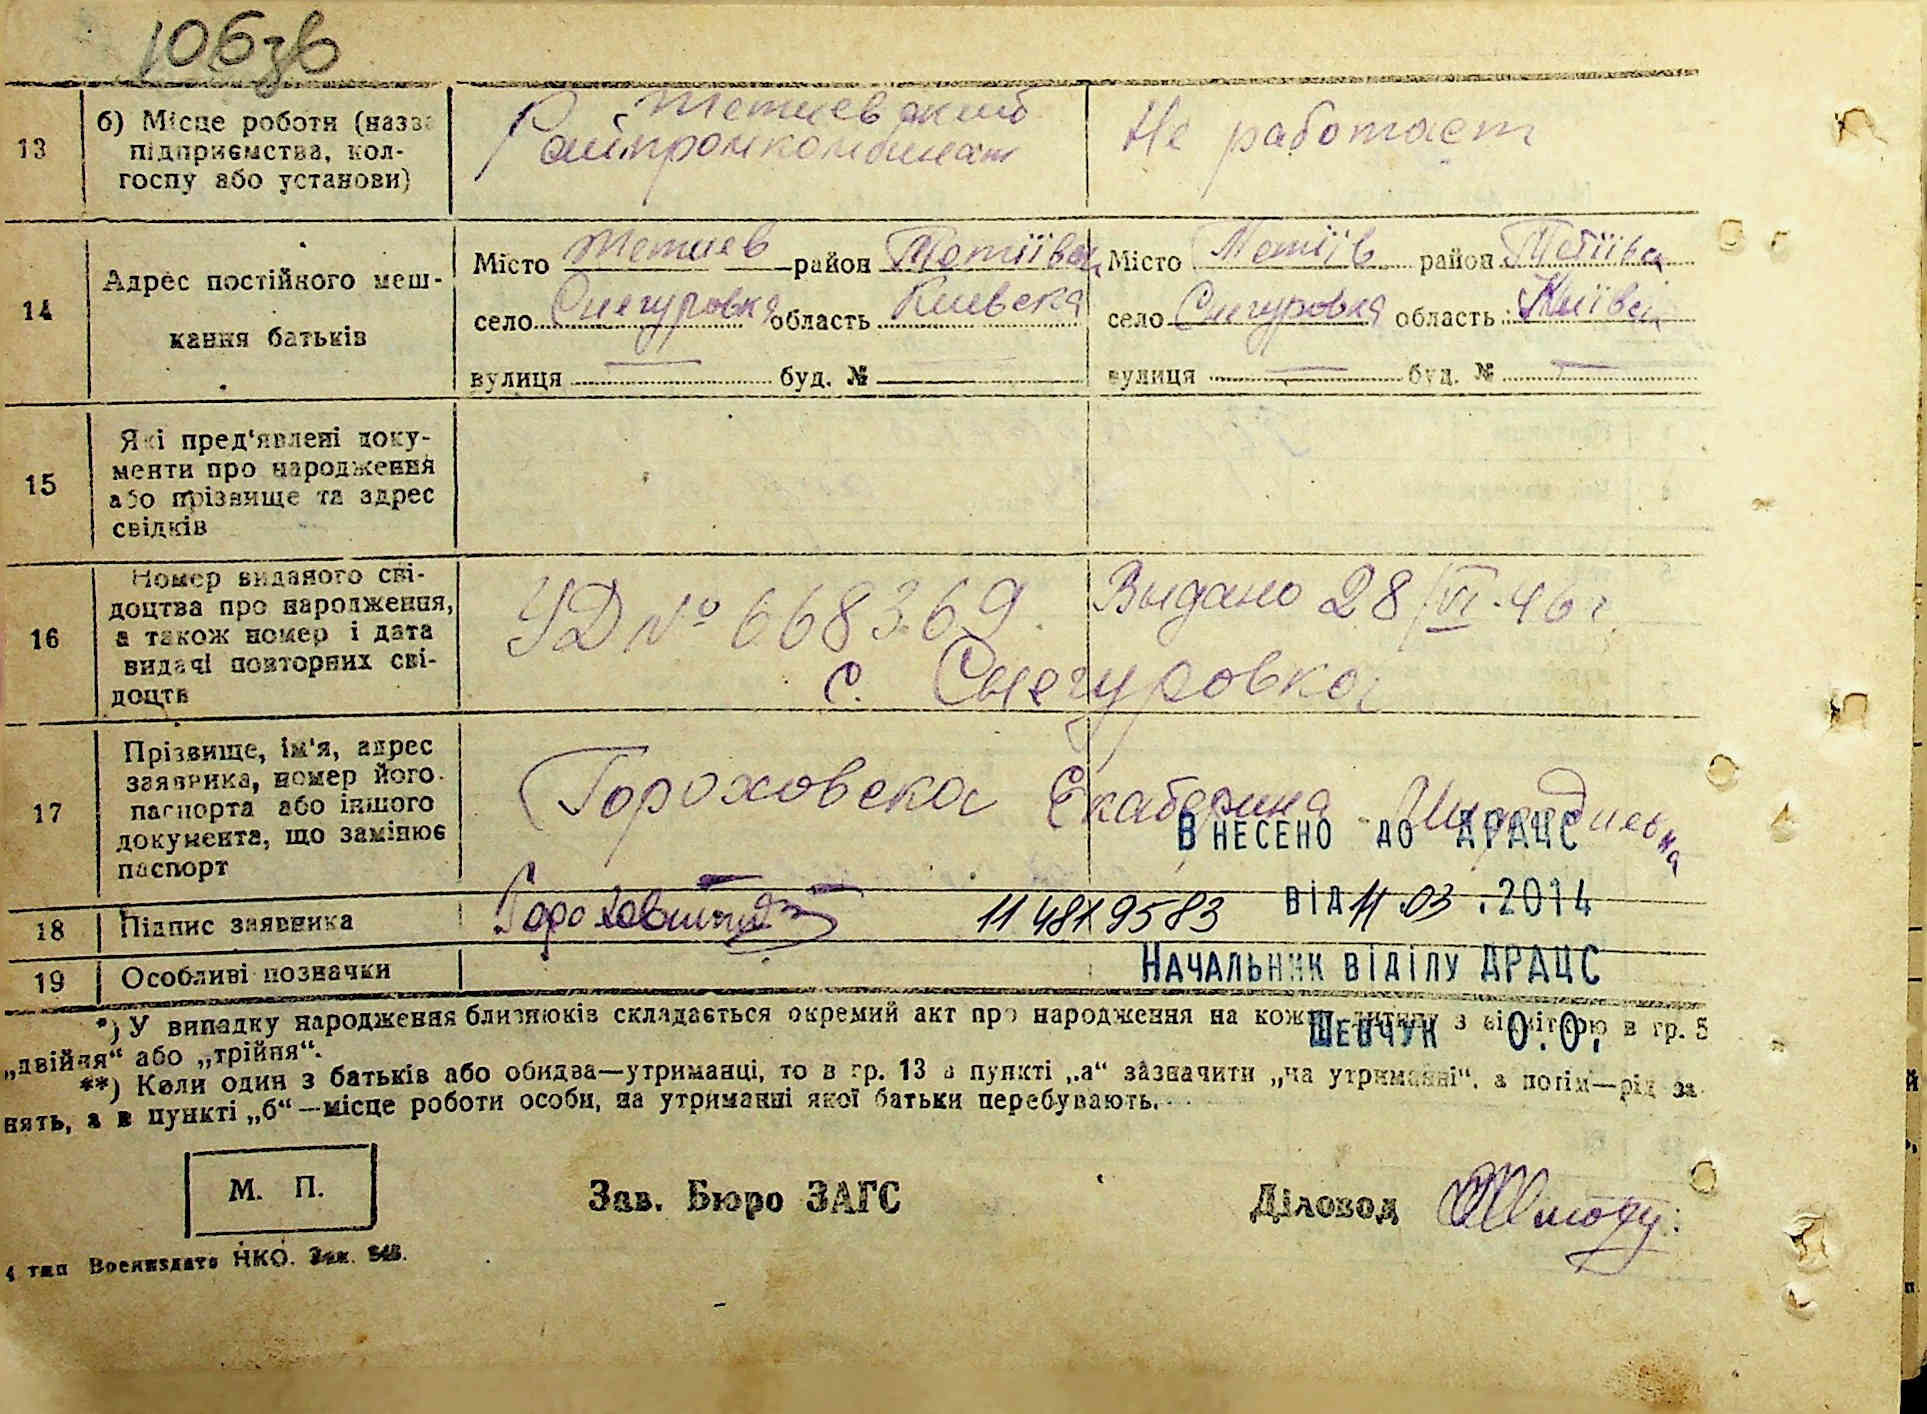 106зв
13
б) Місце роботи (назва
підприємства, кол-
госпу або установи)
Тетиевский
Райпромкомбинат
Не работает
14
Адрес постійного меш-
кання батьків
Місто Тетиев район Тетіївск
село Снегуровка область Киевска
вулиця — буд. №
Місто Тетіїв район Тетіївск
село Снегуровка область Київск
вулиця — буд. № —
15
Які пред'явлені доку-
менти про народження
або прізвище та здрес
свідків
16
Номер виданого сві-
доцтва про народження,
а також номер і дата
видачі повторних сві-
доцтв
УД № 668369. Выдано 28/VI-46 г.
с. Снегуровка
17
Прізвище, ім'я, адрес
заявника, номер його
паспорта або іншого
документа, що замінює
паспорт
Гороховска Екатерина
ВНЕСЕНО ДО ДРАЦС
18
Підпис заявника
114819583
ВІД 11.03.2014
19
Особливі позначки
НАЧАЛЬНИК ВІДІЛУ ДРАЦС
ШЕВЧУК О.О.
*) У випадку народження близнюків складається окремий акт про народження на кожну дитину з відміткою в гр. 5
„двійня“ або „трійня“.
**) Коли один з батьків або обидва—утриманці, то в гр. 13 в пункті „а“ зазначити „на утриманні“, а потім—рід за-
нять, а в пункті „б“—місце роботи особи, на утриманні якої батьки перебувають.
М. П.
Зав. Бюро ЗАГС
Діловод
4 тип Воениздата НКО. Зак. 548.